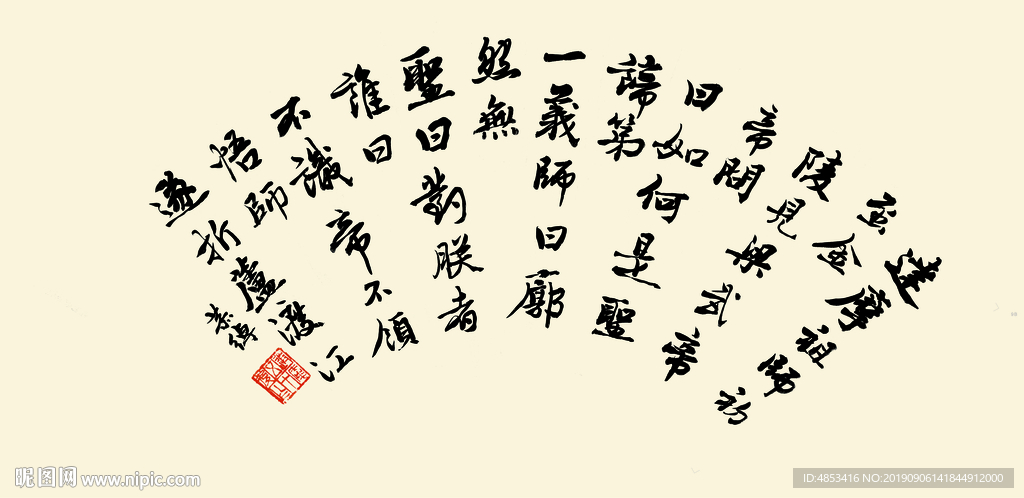 達摩祖師初
至金
陵見與武帝
帝問
曰如何是聖
諦第
一義師曰廓
然無
聖曰對朕者
誰曰
不識帝不領
悟師
遂折蘆渡江
昵图网 www.nipic.com
ID:4853416 NO:20190906141844912000